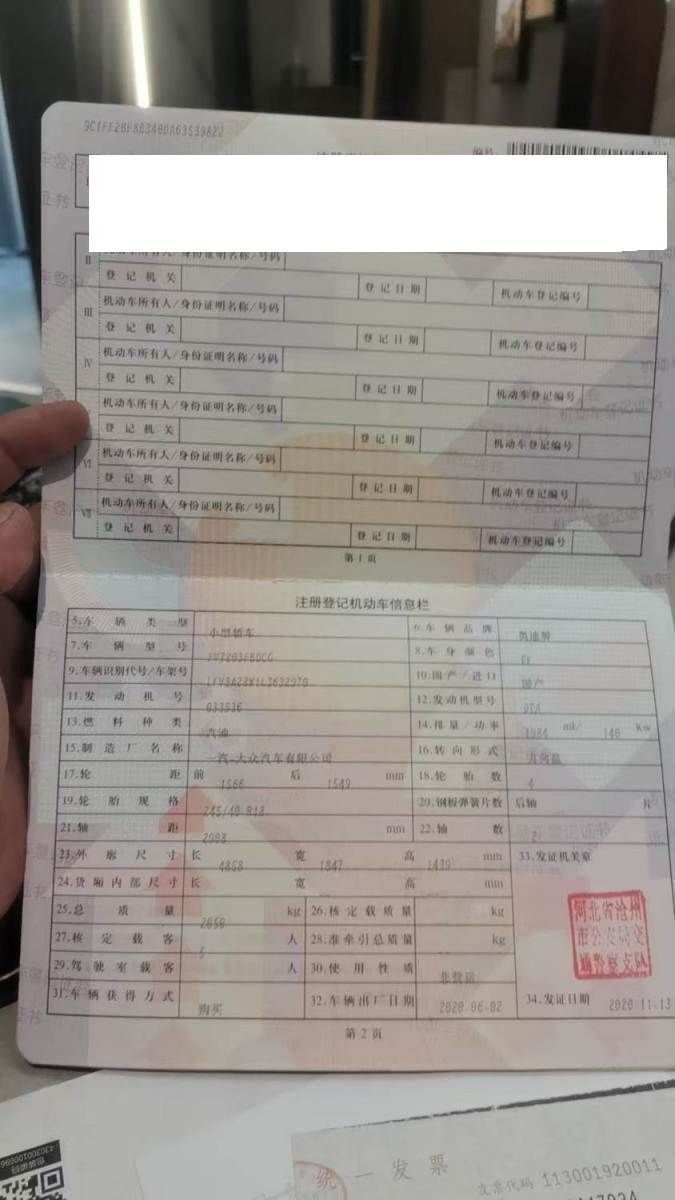 编号:
机动车所有人/身份证明名称/号码
登记机关 登记日期 机动车登记编号
Ⅲ 机动车所有人/身份证明名称/号码
登记机关 登记日期 机动车登记编号
Ⅳ 机动车所有人/身份证明名称/号码
登记机关 登记日期 机动车登记编号
机动车所有人/身份证明名称/号码
登记机关 登记日期 机动车登记编号
Ⅵ 机动车所有人/身份证明名称/号码
登记机关 登记日期 机动车登记编号
Ⅶ 机动车所有人/身份证明名称/号码
登记机关 登记日期 机动车登记编号
第1页
注册登记机动车信息栏
5.车辆类型 小型轿车 6.车辆品牌 奥迪牌
7.车辆型号 8.车身颜色 白
9.车辆识别代号/车架号 10.国产/进口 国产
11.发动机号 033536 12.发动机型号
13.燃料种类 汽油 14.排量/功率 1984 ml/ 140 Kw
15.制造厂名称 一汽-大众汽车有限公司 16.转向形式 方向盘
17.轮距 前 1566 后 1549 mm 18.轮胎数 4
19.轮胎规格 245/40 R18 20.钢板弹簧片数 后轴 片
21.轴距 2908 mm 22.轴数 2
23.外廓尺寸 长 4858 宽 1847 高 1439 mm 33.发证机关章
24.货厢内部尺寸 长 宽 高 mm
25.总质量 2050 kg 26.核定载质量 kg
27.核定载客 5 人 28.准牵引总质量 kg
29.驾驶室载客 人 30.使用性质 非营运
31.车辆获得方式 购买 32.车辆出厂日期 2020-06-02 34.发证日期 2020-11-13
河北省沧州
市公安局交
通警察支队
第2页
统一发票
发票代码 113001920011